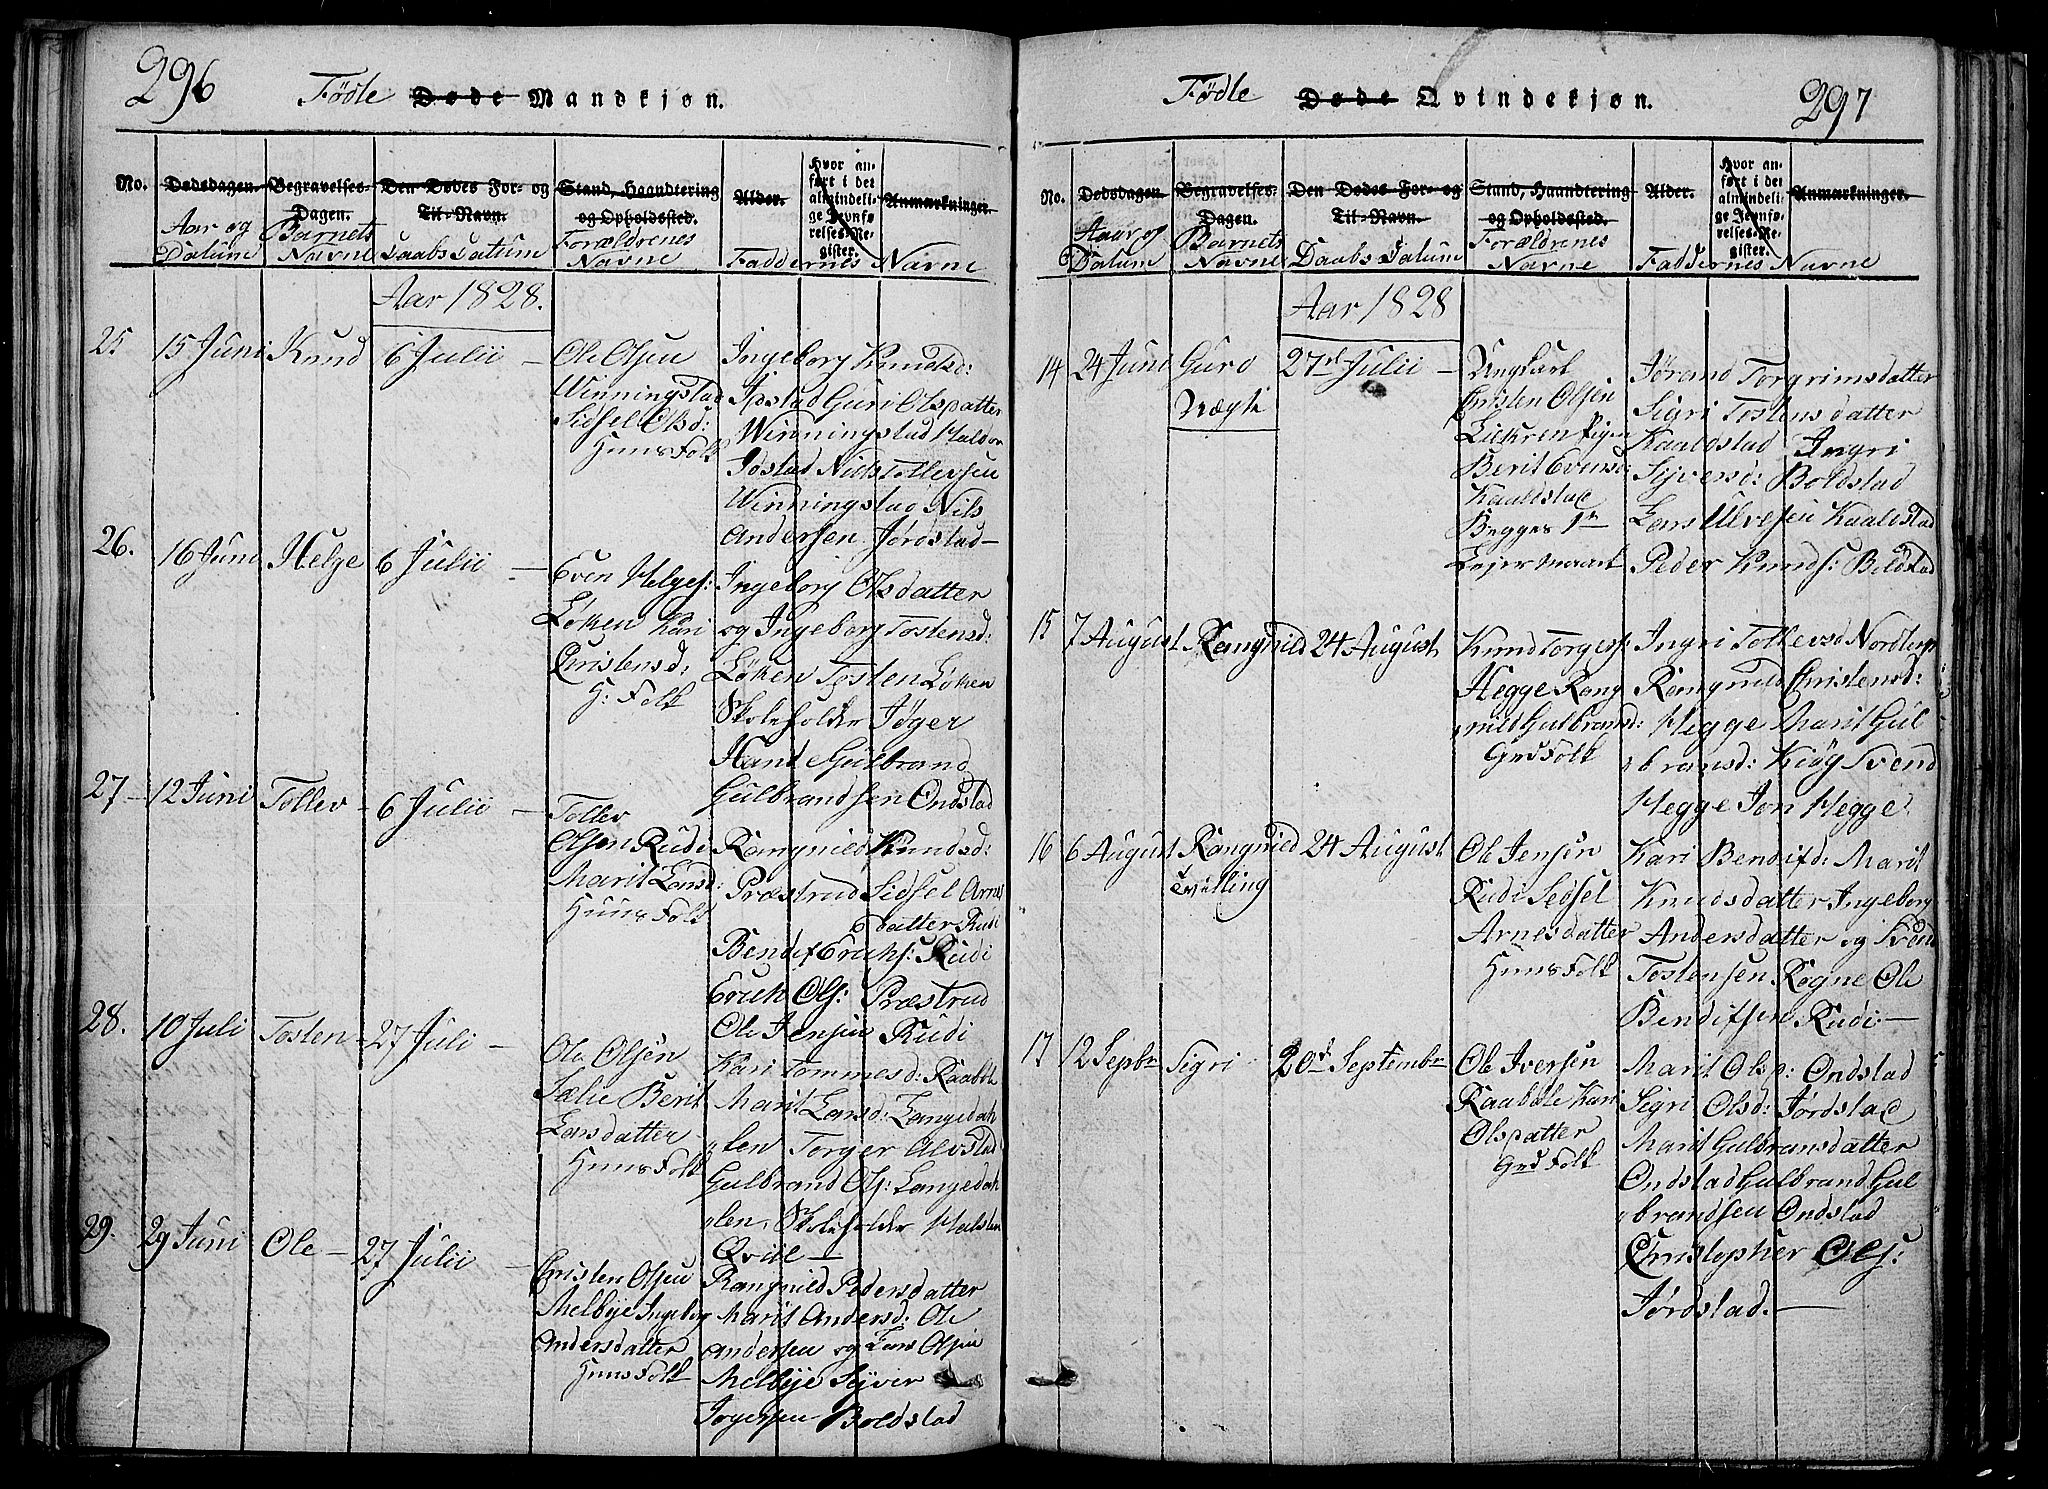 296
Fødte Døde Mandkjøn.
No.
Dødsdagen.
Aar og
Datum
Begravelses-
Dagen.
Barnets
Navne
Den Dødes For- og
Til-Navn.
Daabs Datum
Stand, Haandtering
og Opholdssted.
Forældrenes
Navne
Alder.
Hvor an-
ført i det
almindeli-
ge Jevnfø-
relses-Re-
gister.
Anmærkninger.
Faddernes Navne
Aar 1828.
25
15 Juni
Knud
6 Julii
Ole Olsen
Winningstad
Sidsel Olsd:
Huus Folk
Ingeborg Knudsd:
Ipstad Guri Olsdatter
Winningstad Haldor
Idstad Niels Tollevsen
Winningstad Nils
Andersen Jørdstad
26.
16 Juni
Helge
6 Julii
Even Helges:
Løken Kari
Christensd:
H: Folk
Ingeborg Olsdatter
og Ingeborg Tostensd:
Løken Tosten Løken
Skoleholder Jøger
Gulbrand
Gulbrandsen Ondstad
27
12 Juni
Tollev
6 Julii
Tollev
Olsen Rudi
Marit Larsd:
Huus Folk
Rangnild Knudsd:
Præstrud Sidsel Arnes
Datter Rudi
Bendix Erichs: Rudi
Erich Ols: Præstrud
Ole Jensen Rudi
28.
10 Juli
Tosten
27 Juli
Ole Olsen
Sælie Berit
Larsdatter
Huus Folk
Kari Tommesd: Raabøle
Marit Larsd: Langedah
len Torger Alvstad
Gulbrand Ols: Langedah
len, Skoleholder Halsten
Qvile
29.
29 Juni
Ole
27 Julii
Christen Olsen
Melbye Ingeborg
Andersdatter
Huus Folk
Rangnild Pedersdatter
Marit Andersd: Ole
Andersen og Lars Olsen
Melbye Syver
Joversen Boldstad
297
Fødte Døde Qvindekjøn.
No.
Dødsdagen.
Aar og
Datum
Begravelses-
Dagen.
Barnets
Navne
Den Dødes For- og
Til-Navn.
Daabs Datum
Stand, Haandtering
og Opholdssted.
Forældrenes
Navne
Alder.
Hvor an-
ført i det
almindeli-
ge Jevnfø-
relses-Re-
gister.
Anmærkninger.
Faddernes Navne
Aar 1828
14
24 Juni
Guro
Uægte
27d Julii
Ungkarl
Christen Olsen
Liekren Pigen
Berit Evensd
Kaaldstad
Begges 1te
Lejermaal
Jørand Torgrimsdatter
Sigri Tostensdatter
Kaaldstad Ingri
Syversd: Boldstad
Lars Ulvesen Kaaldstad
Peder Knuds: Boldstad
15
7 August
Rangnild
24 August
Knud Torgers:
Hegge Rang
nild Gulbransd:
Grd Folk
Ingri Tollevsd Nordtorp
Rangnild Christensd:
Hegge Marit Gul
bransd: Kiøg Svend
Hegge Jon Hegge
16
6 August
Rangnild
Tvilling
24 August
Ole Jensen
Rudi Sidsel
Arnesdatter
Huus Folk
Kari Bendixd: Marit
Knudsdatter Ingeborg
Andersdatter og Svend
Tostensen Rogne Ole
Bendixsen Rudi
17
12 Sepbr
Sigri
20d Septembr
Ole Iversen
Raabøle Kari
Olsdatter
Grd Folk
Marit Olsd: Ondstad
Sigri Olsd: Jørdstad
Marit Gulbransdatter
Ondstad Gulbrand Gul
brandsen Ondstad
Christopher Ols:
Jørdstad.